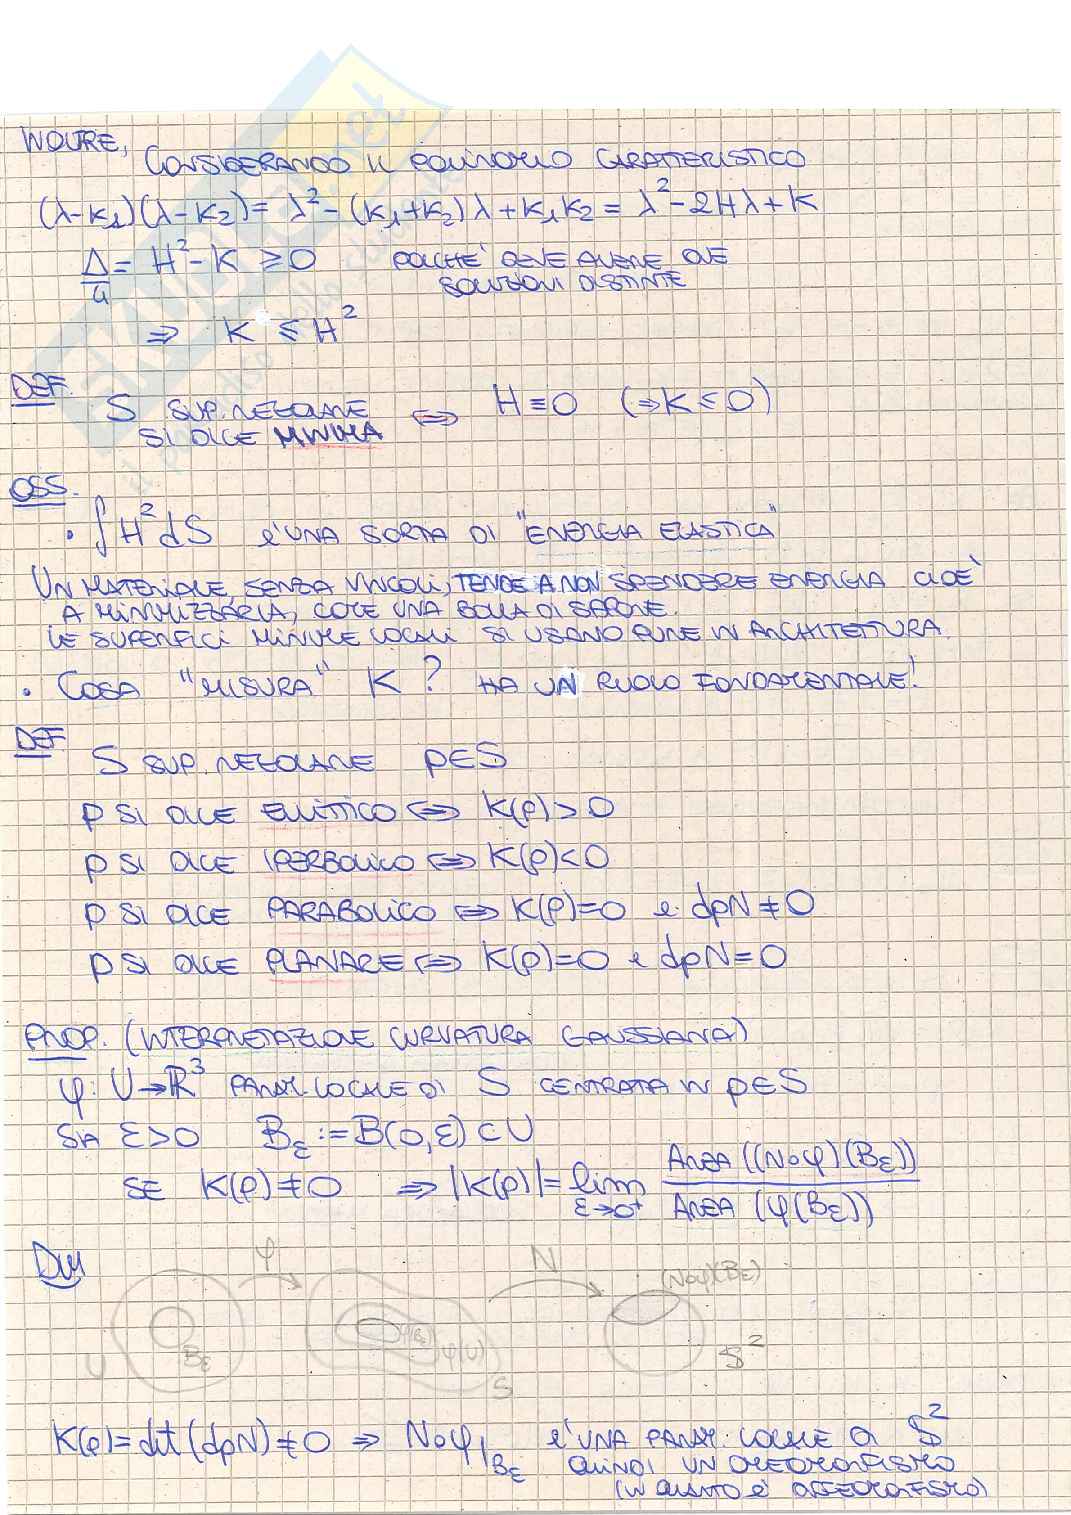 INOLTRE, CONSIDERANDO IL POLINOMIO CARATTERISTICO
(λ-K₁)(λ-K₂)= λ²-(K₁+K₂)λ+K₁K₂ = λ²-2Hλ+K
Δ/4 = H²-K ≥ 0 POICHÉ DEVE AVERE DUE
SOLUZIONI DISTINTE
⇒ K ≤ H²
DEF.
S SUP. REGOLARE ⇔ H≡0 (⇒K≤0)
SI DICE MINIMA
OSS.
• ∫H²dS È UNA SORTA DI "ENERGIA ELASTICA"
UN MATERIALE, SENZA VINCOLI, TENDE A NON SPENDERE ENERGIA CIOÈ
A MINIMIZZARLA, COME UNA BOLLA DI SAPONE.
LE SUPERFICI MINIME LOCALI SI USANO PURE IN ARCHITETTURA.
• COSA "MISURA" K? HA UN RUOLO FONDAMENTALE!
DEF
S SUP. REGOLARE p∈S
p SI DICE ELLITTICO ⇔ K(p)>0
p SI DICE IPERBOLICO ⇔ K(p)<0
p SI DICE PARABOLICO ⇔ K(p)=0 e dpN≠0
p SI DICE PLANARE ⇔ K(p)=0 e dpN=0
PROP. (INTERPRETAZIONE CURVATURA GAUSSIANA)
φ: U→ℝ³ PARAM. LOCALE DI S CENTRATA IN p∈S
SIA ε>0 Bε:=B(0,ε)⊂U
SE K(p)≠0 ⇒ |K(p)|= lim ε→0⁺ AREA((N∘φ)(Bε)) / AREA(φ(Bε))
DIM
φ N (N∘φ)(Bε)
U Bε φ(Bε) φ(U) S S²
K(p)=det(dpN)≠0 ⇒ N∘φ|Bε È UNA PARAM. LOCALE DI S²
QUINDI UN OMEOMORFISMO
(IN QUANTO È DIFFEOMORFISMO)